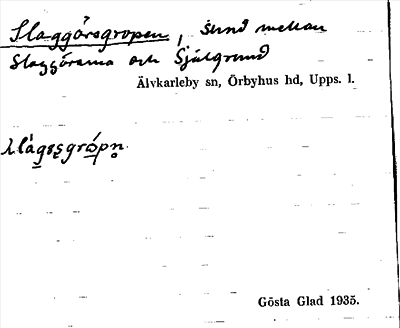 Slaggörsgropen, sund mellan
Slaggörarna och Själgrund
Älvkarleby sn, Örbyhus hd, Upps. l.
Gösta Glad 1935.